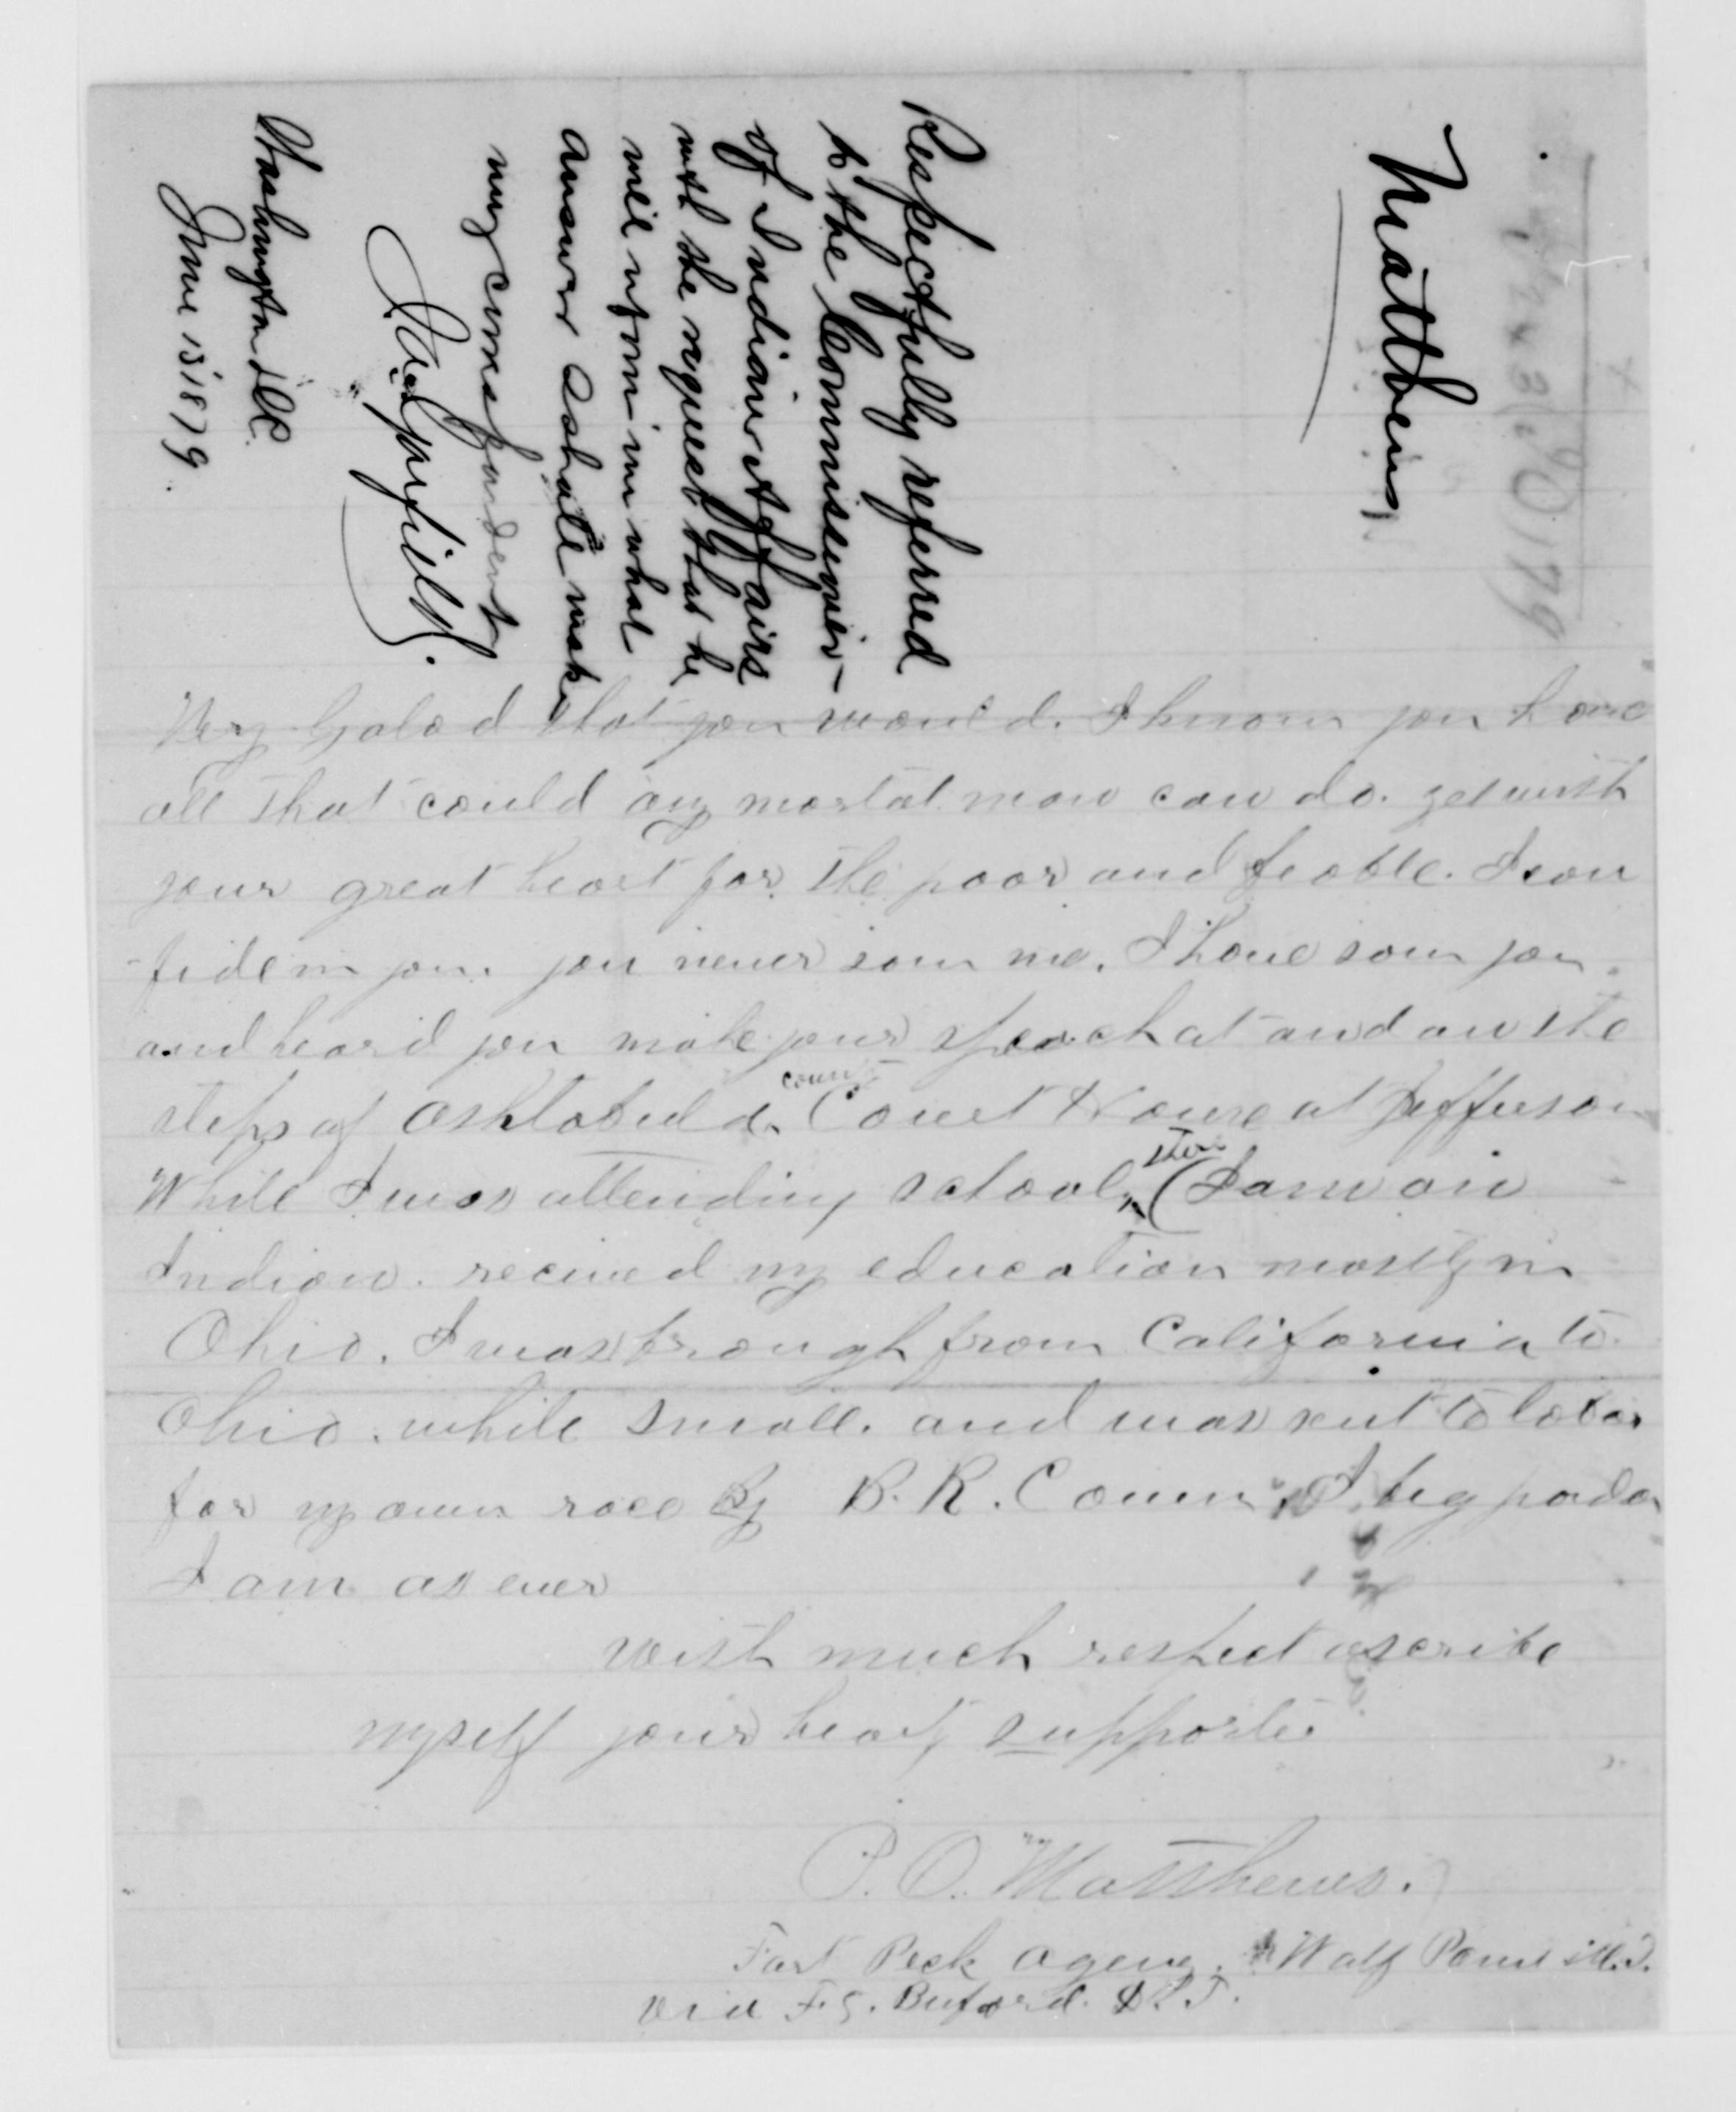 Matthews
Respectfully referred
to the Commissioner
of Indian Affairs
with the request that he
will inform me what
answer I shall make
my correspondent
Jas A Garfield.
Washington D.C.
June 13 1879.
Very Galad that you would. I know you have
all that could any mortal man can do. yet with
your great heart for the poor and feable. I con
fide in you. you never saw me. I have saw you
and heard you make your speach at and on the
steps of Ashtabula County Court House at Jefferson
While I was attending school there (I am an
Indian. recived my education mostly in
Ohio. I was brough from California to
Ohio. while small. and was sent to labor
for my own race By B. R. Cowen I beg pardon
I am as ever
with much respect ascribe
myself your hearty supporter
P. O. Matthews.
Fort Peck Agency. Wolf Point M.T.
via Ft. Buford. D.T.